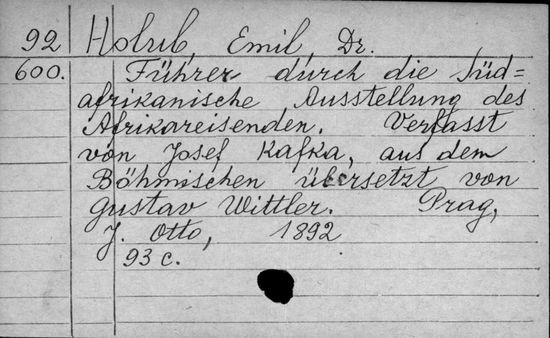 92 Holub, Emil, Dr.
600. Führer durch die Süd=
afrikanische Ausstellung des
Afrikareisenden. Verfasst
von Josef Kafka, aus dem
Böhmischen übersetzt von
Gustav Wittler. Prag,
J. Otto, 1892
93 c.